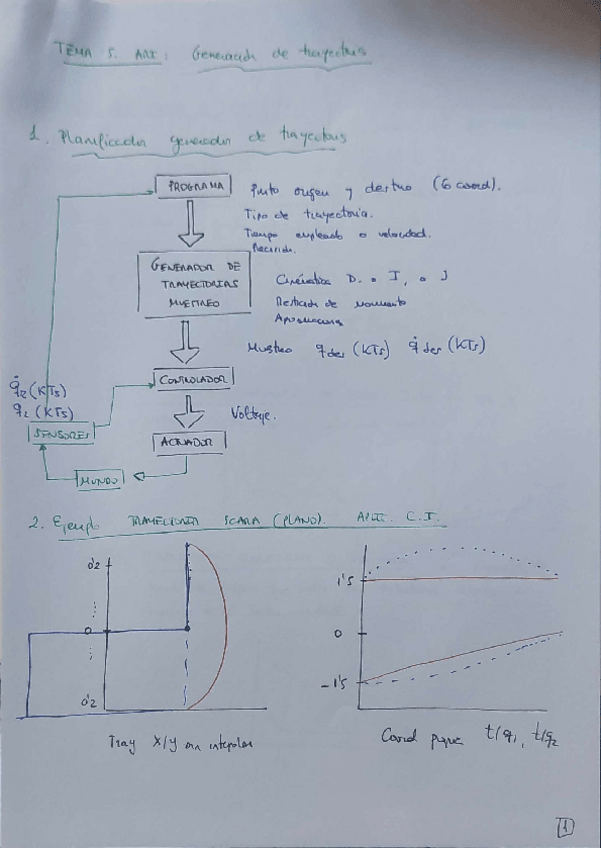 TEMA 5. ART: Generación de trayectorias
1. Planificador generador de trayectorias
PROGRAMA
Punto origen y destino (6 coord).
Tipo de trayectoria.
Tiempo empleado o velocidad.
GENERADOR DE
TRAYECTORIAS
MUESTREO
Cinemática D. o I, o J
de movimiento
Muestreo q des (KTs) q̇ des (KTs)
q̇r (KTs)
qr (KTs)
CONTROLADOR
Voltaje.
SENSORES
ACTUADOR
MUNDO
2. Ejemplo TRAYECTORIA SCARA (PLANO). C.I.
0'2
0
0'2
1'5
0
-1'5
Tray X/Y sin interpolar
Coord t/q1, t/q2
1